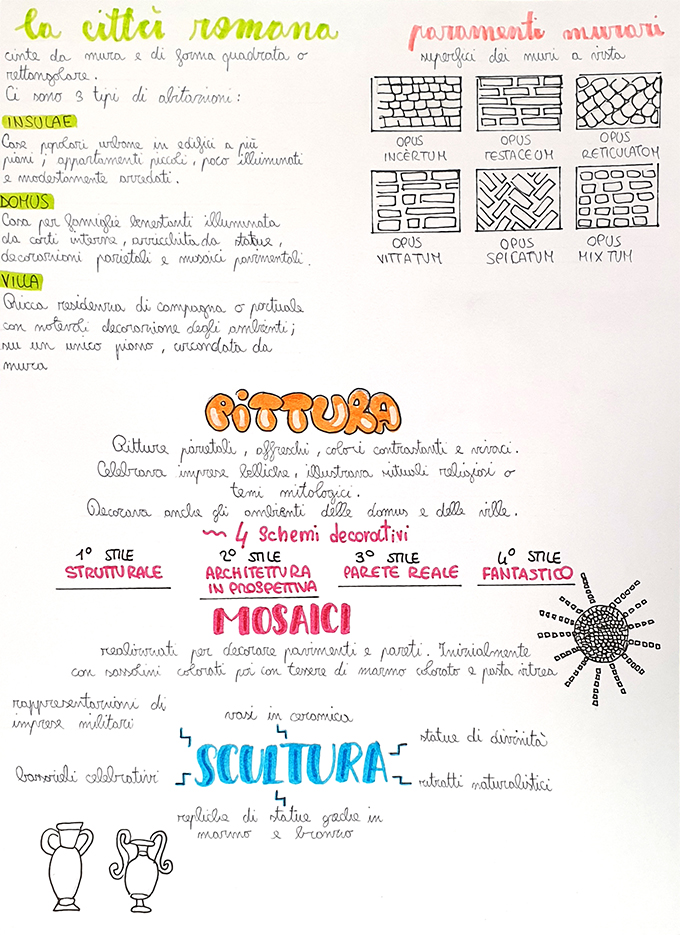 la città romana
cinte da mura e di forma quadrata o
rettangolare.
Ci sono 3 tipi di abitazioni:
INSULAE
Case popolari urbane in edifici a più
piani, appartamenti piccoli, poco illuminati
e modestamente arredati.
DOMUS
Casa per famiglie benestanti illuminata
da corti interne, arricchita da statue,
decorazioni parietali e mosaici pavimentali.
VILLA
Ricca residenza di campagna o portuale
con notevoli decorazione degli ambienti;
su un unico piano, circondata da
mura
paramenti murari
superfici dei muri a vista
OPUS
INCERTUM
OPUS
TESTACEUM
OPUS
RETICULATOM
OPUS
VITTATUM
OPUS
SPICATUM
OPUS
MIXTUM
PITTURA
Pitture parietali, affreschi, colori contrastanti e vivaci.
Celebrava imprese belliche, illustrava rituali religiosi o
temi mitologici.
Decorava anche gli ambienti delle domus e delle ville.
4 schemi decoractivi
1° STILE
STRUTTURALE
2° STILE
ARCHITETTURA
IN PROSPETTIVA
3° STILE
PARETE REALE
4° STILE
FANTASTICO
MOSAICI
realizzati per decorare pavimenti e pareti. Inizialmente
con sassolini colorati poi con tesere di marmo colorato e pasta vitrea
rappresentazioni di
imprese militari
vasi in ceramica
statue di divinità
SCULTURA
bassorieli celebrativi
ritratti naturalistici
repliche di statue greche in
marmo e bronzo